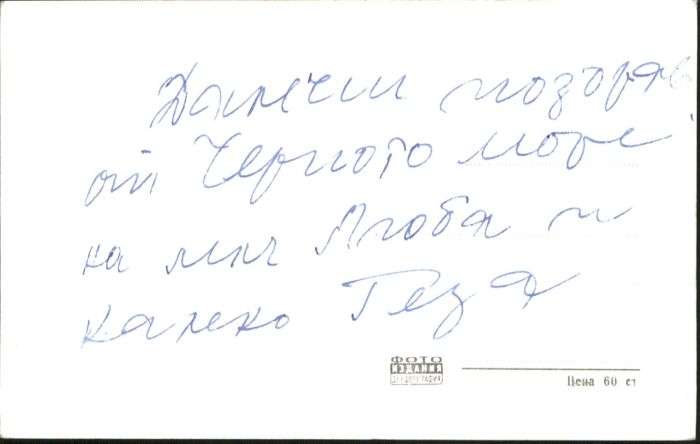 Далечни поздрав
от Черното море
на леля Люба и
калеко Геза
ФОТО
ИЗДАНИЯ
Цена 60 ст